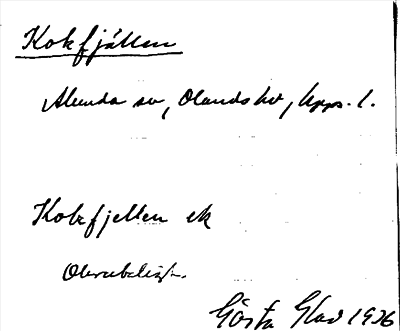 Kokfjällen
Alunda sn, Olands hd, Upps. l.
Kokfjellen ek
Gösta Glad 1926